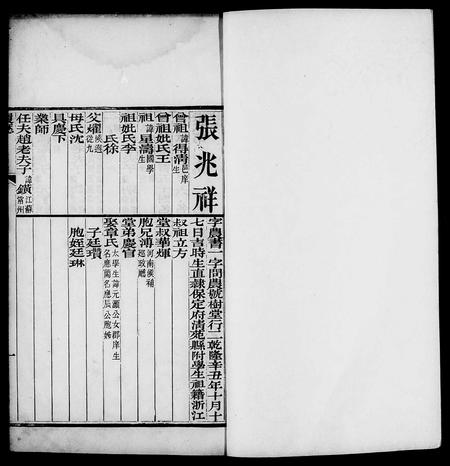 張兆祥
字農書一字問農號樹堂行二乾隆辛丑年十月十
七日吉時生直隸保定府清苑縣附學生祖籍浙江
曾祖諱得清邑庠生
曾祖妣氏王
祖諱星濤國學生
祖妣氏李
氏徐
父燿候選從九
母氏沈
具慶下
業師
任夫趙老夫子諱鐄江蘇常州
叔祖立方
堂叔華煇
胞兄溥河南候補巡政廳
堂弟慶官
娶章氏太學生諱元灝公女郡庠生名應蘭名應辰公胞姊
子廷瓚
胞姪廷琳